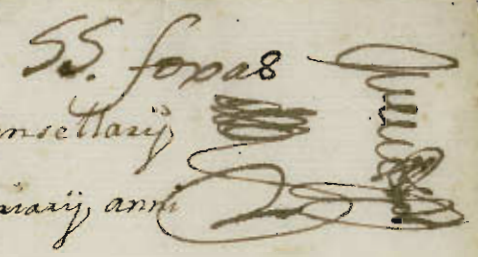 SS. foxas
nsellarij
uarij, anni